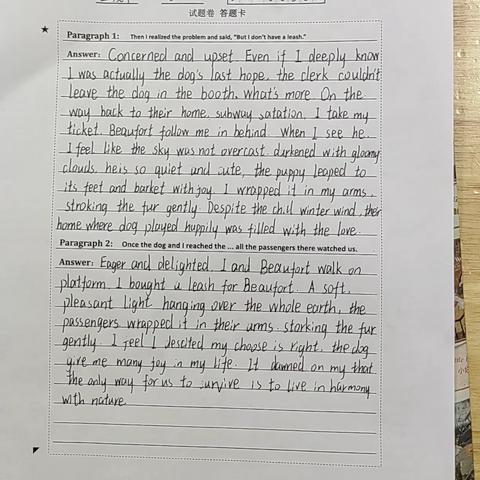 试题卷 答题卡
★
Paragraph 1: Then I realized the problem and said, "But I don't have a leash."
Answer: Concerned and upset Even if I deeply know
I was actually the dog's last hope, the clerk couldn't
leave the dog in the booth. what's more On the
way back to their home, subway satation, I take my
ticket. Beaufort follow me in behind. When I see he.
I feel like the sky was not overcast, darkened with gloomy
clouds. he is so quiet and cute, the puppy leaped to
its feet and barket with joy. I wrapped it in my arms,
stroking the fur gently. Despite the chill winter wind, their
home where dog played huppily was filled with the love.
Paragraph 2: Once the dog and I reached the ... all the passengers there watched us.
Answer: Eager and delighted, I and Beaufort walk on
platform. I bought a leash for Beaufort. A soft,
pleasant light hanging over the whole earth, the
passengers wrapped it in their arms. storking the fur
gently. I feel I descited my choose is right, the dog
give me many joy in my life. It dawned on my that
the only way for us to survive is to live in harmony
with nature.